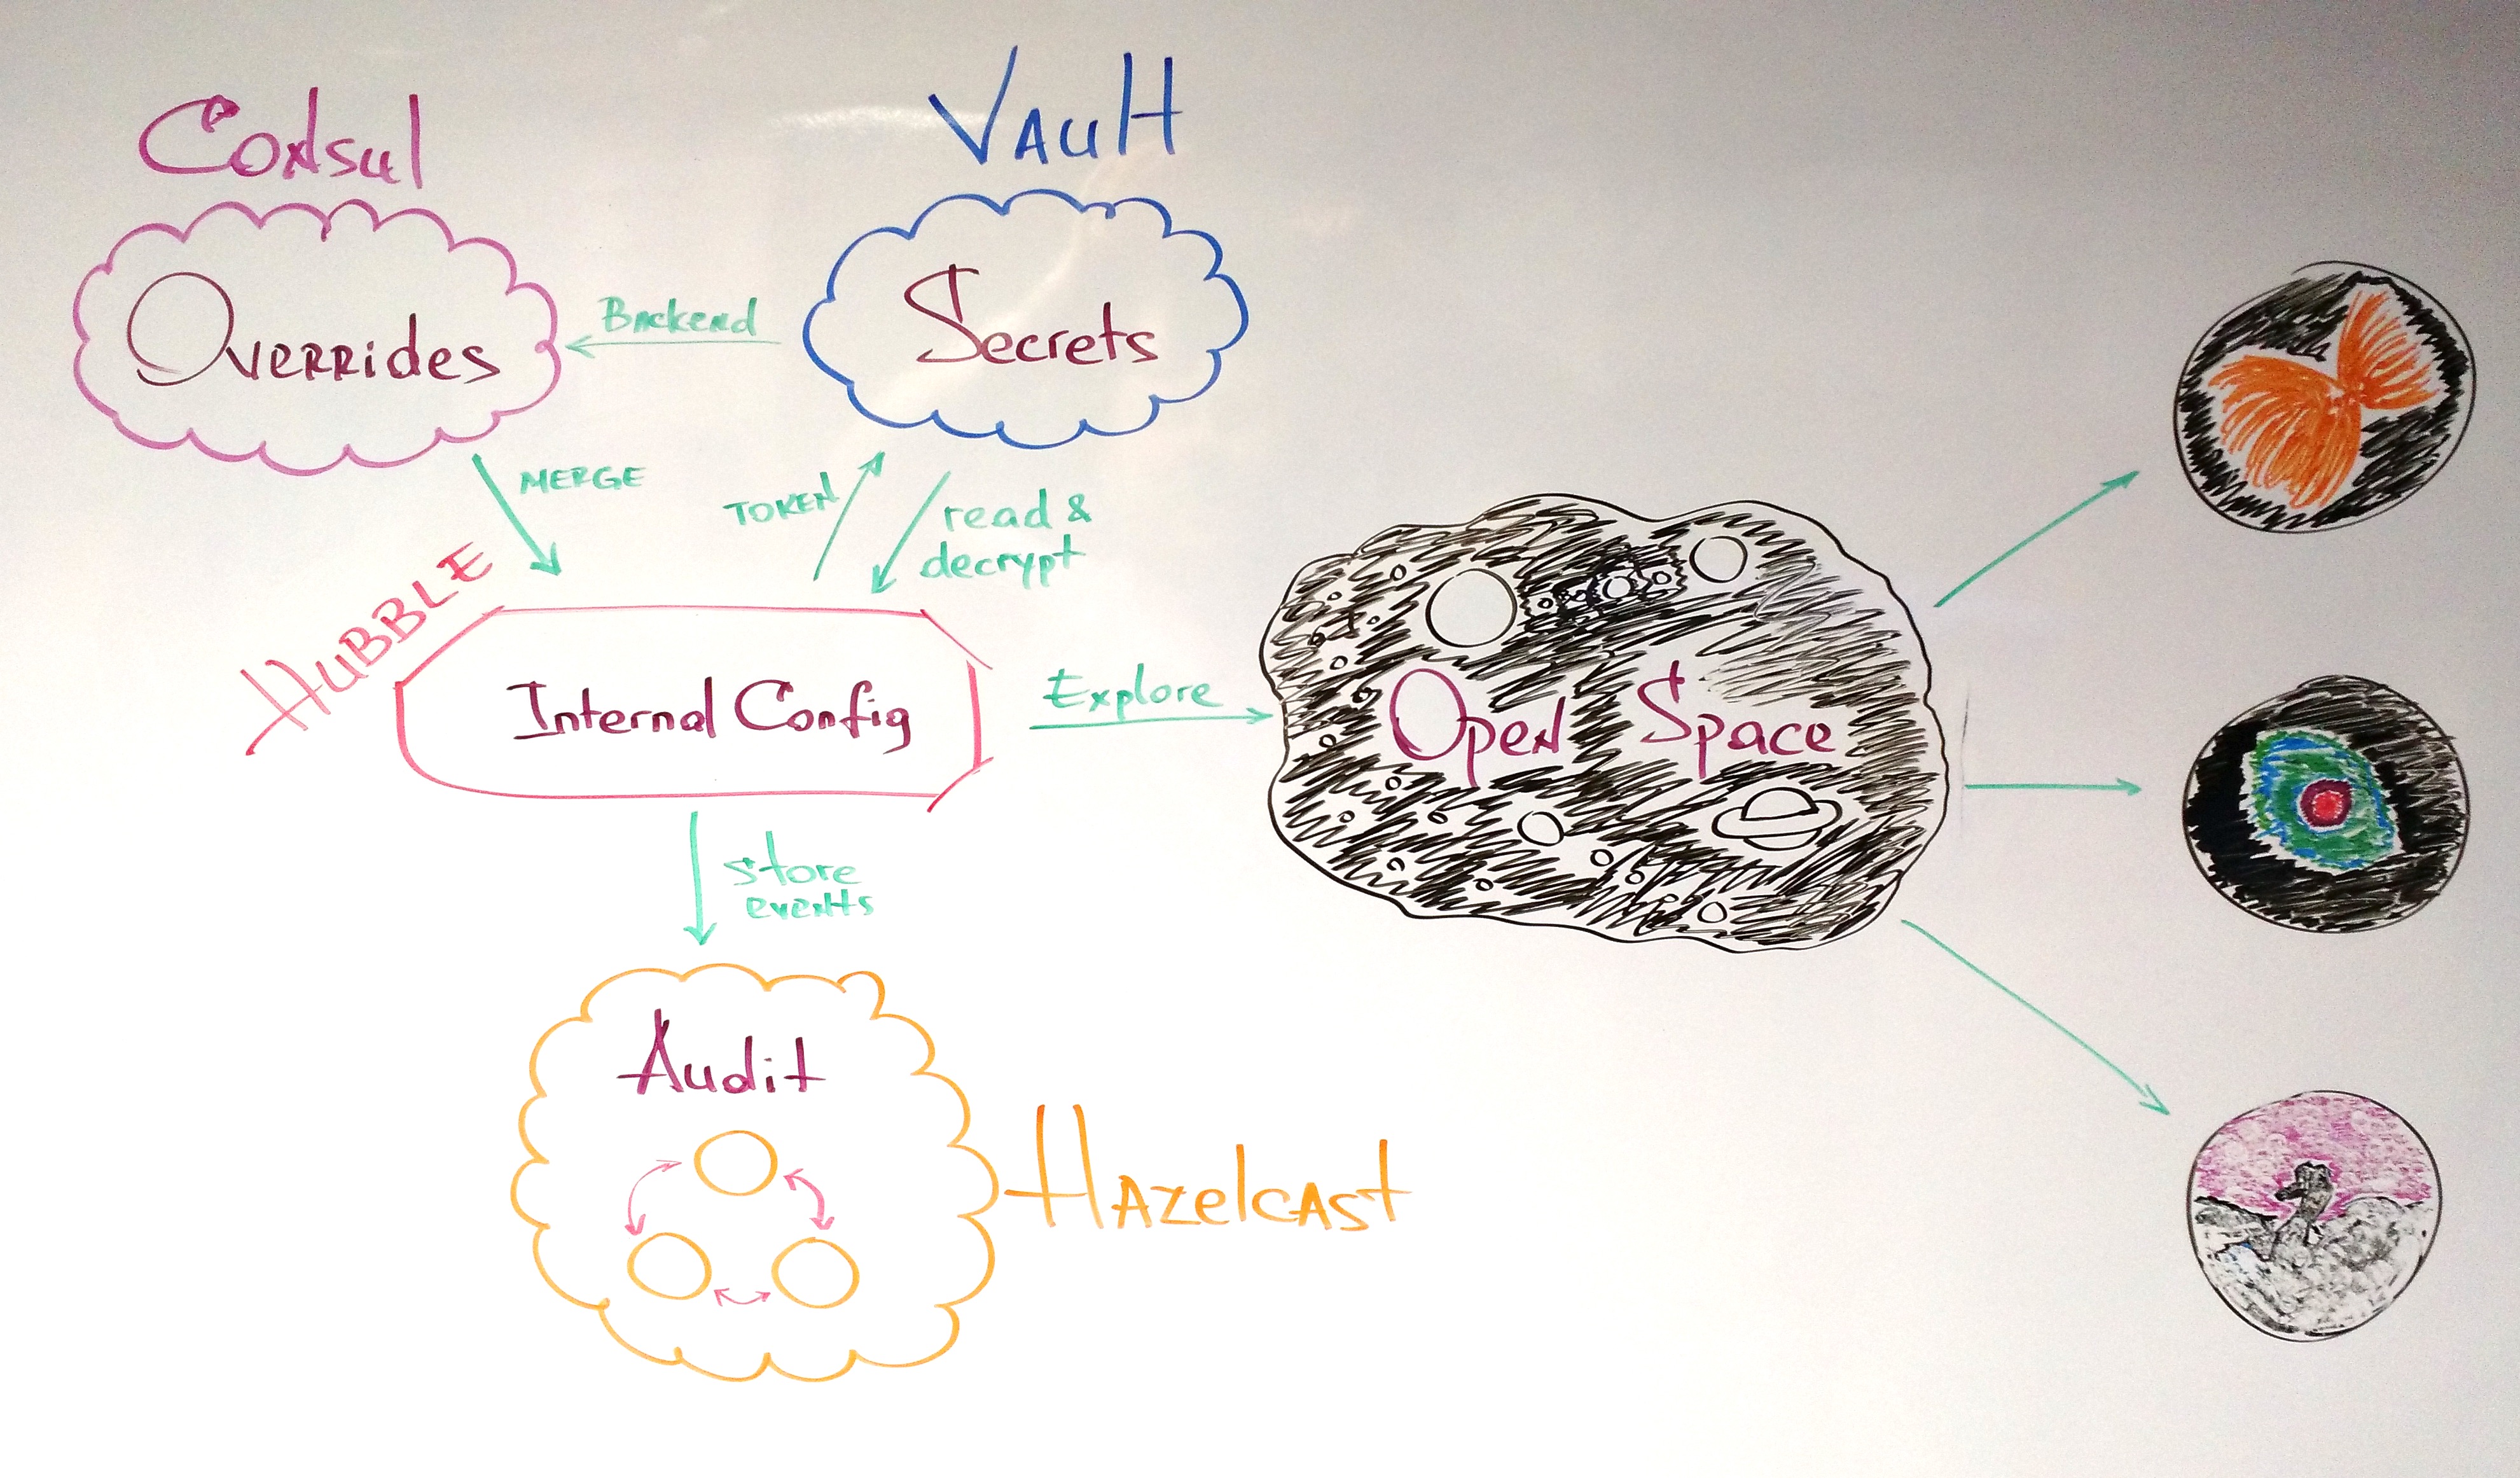 Consul
Vault
Overrides
Backend
Secrets
MERGE
TOKEN
read &
decrypt
HUBBLE
Internal Config
Explore
Open Space
store
events
Audit
Hazelcast